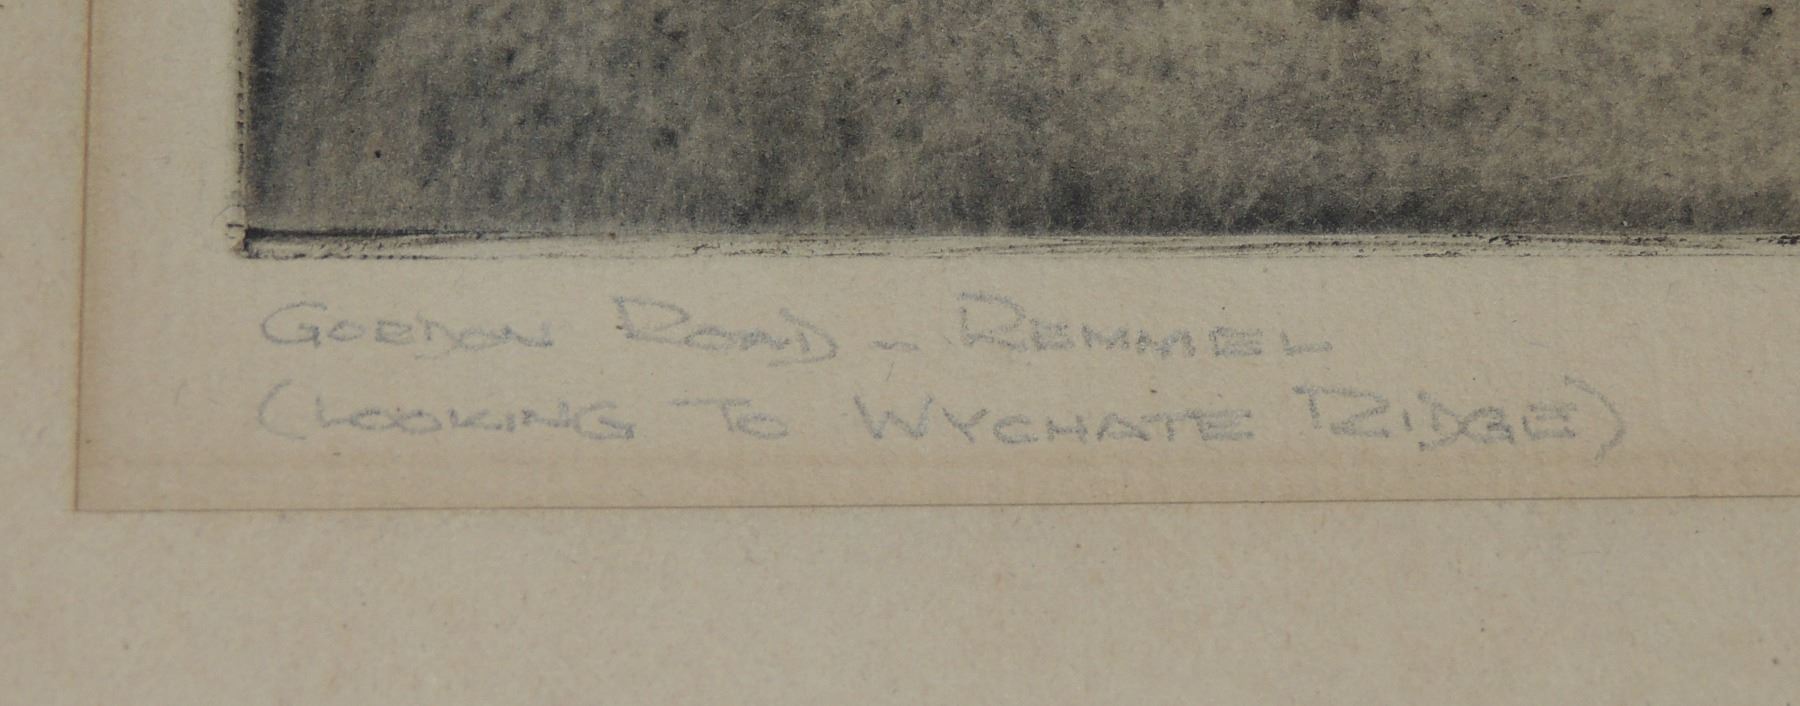 GORDON ROAD - REMMEL
(LOOKING TO WYCHATE RIDGE)